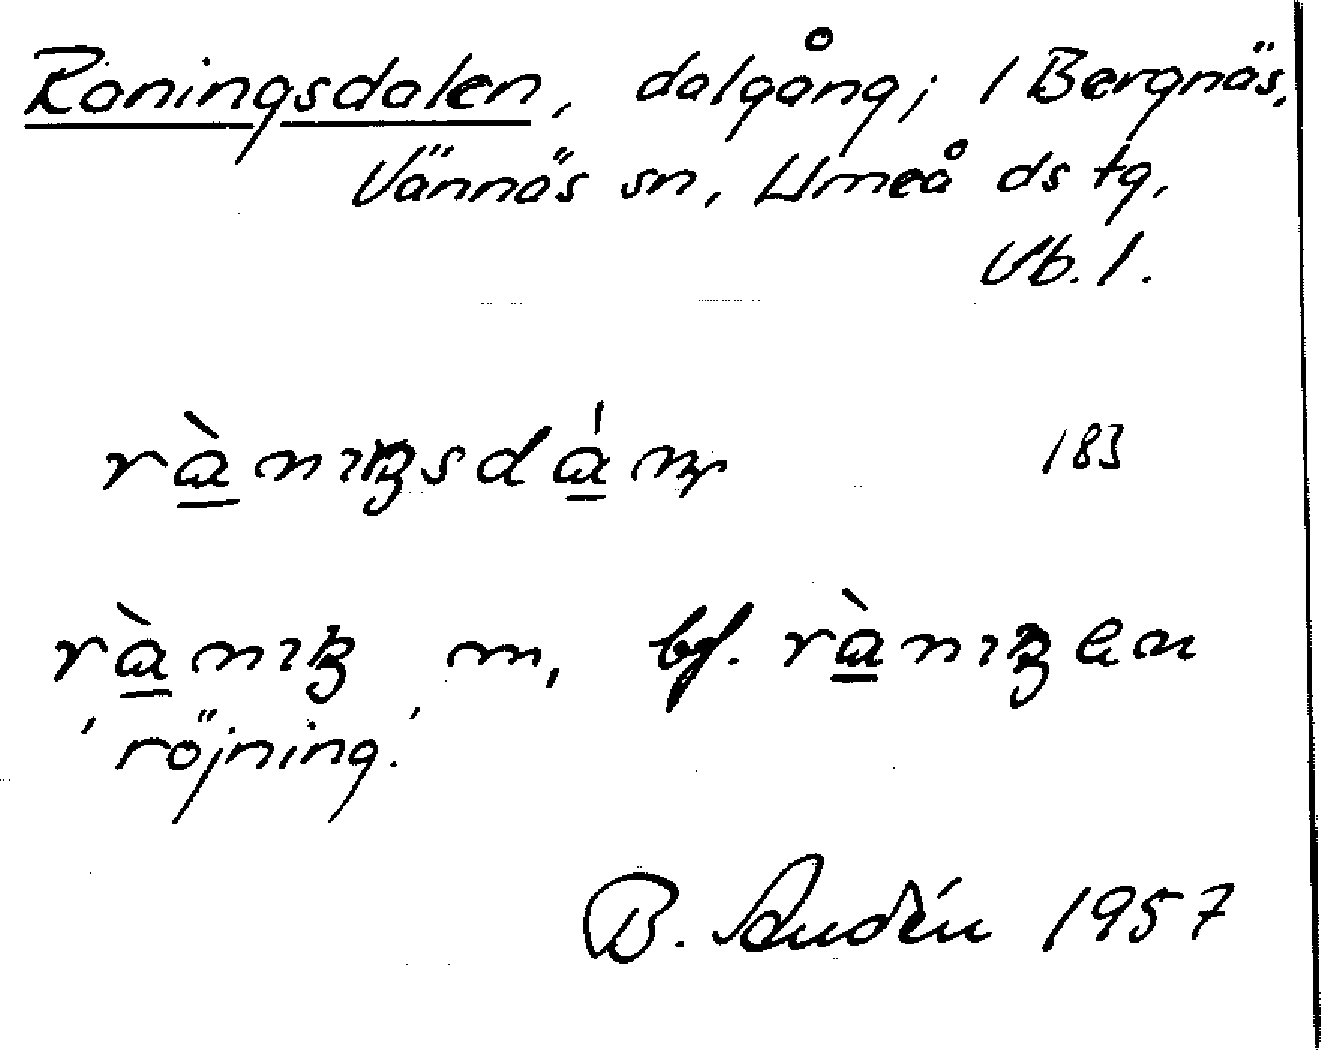 Raningsdalen, dalgång; i Bergnäs,
Vännäs sn, Umeå ds tg,
Vb. l.
rànıŋsdán 183
rànıŋ m, bf. rànıŋen
'röjning.'
1957